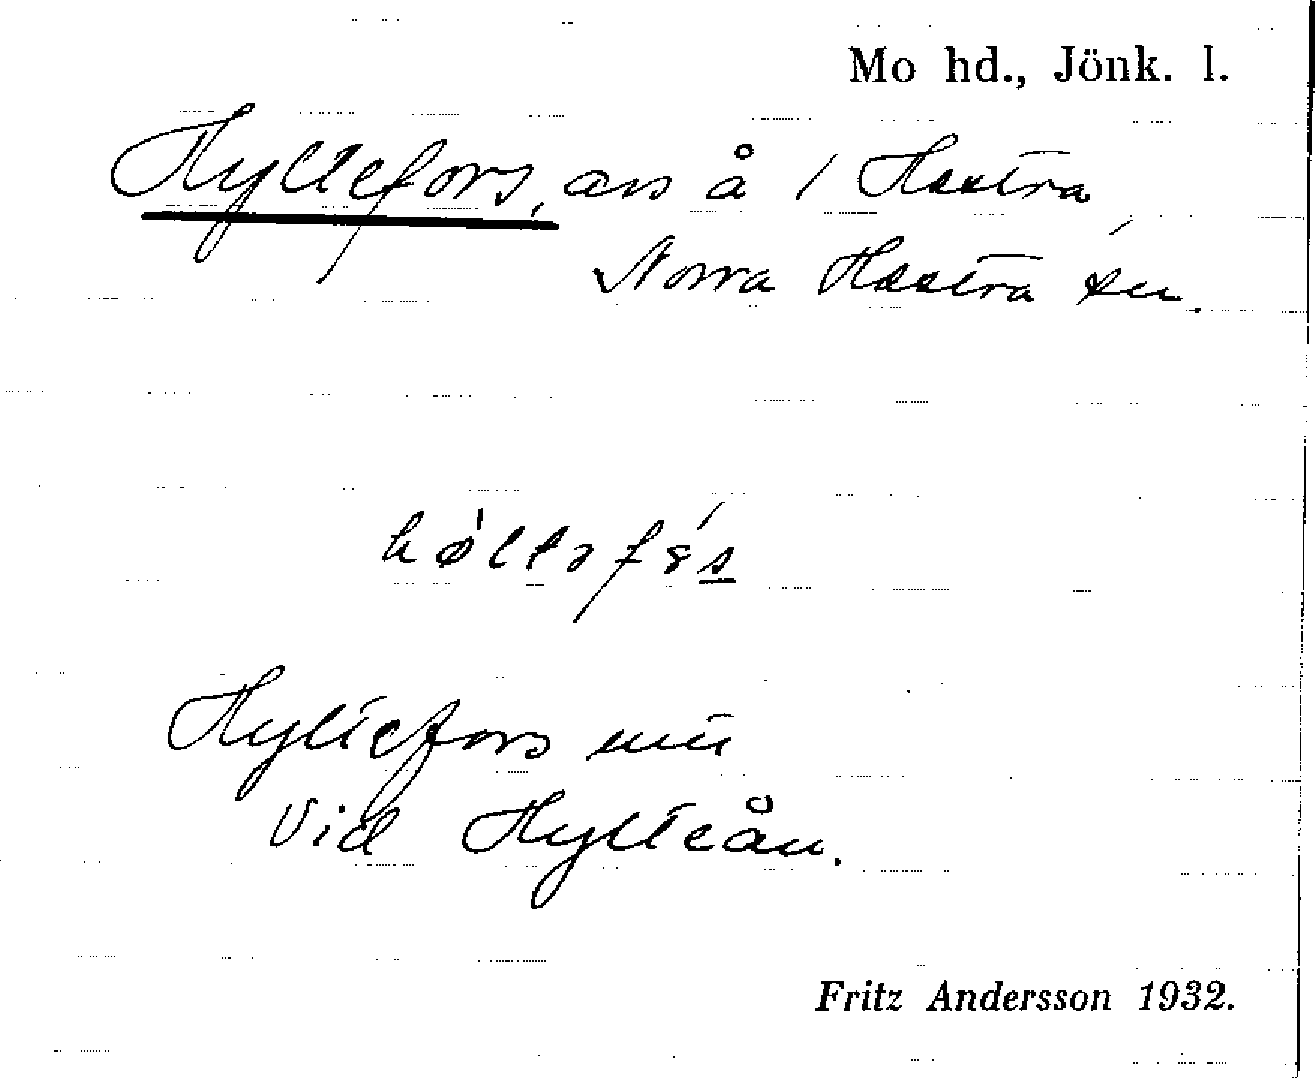 Mo hd., Jönk. l.
Hyltefors, avs å / Hestra,
Norra Hestra sn.
Hyltefors
vid Hylteån.
Fritz Andersson 1932.